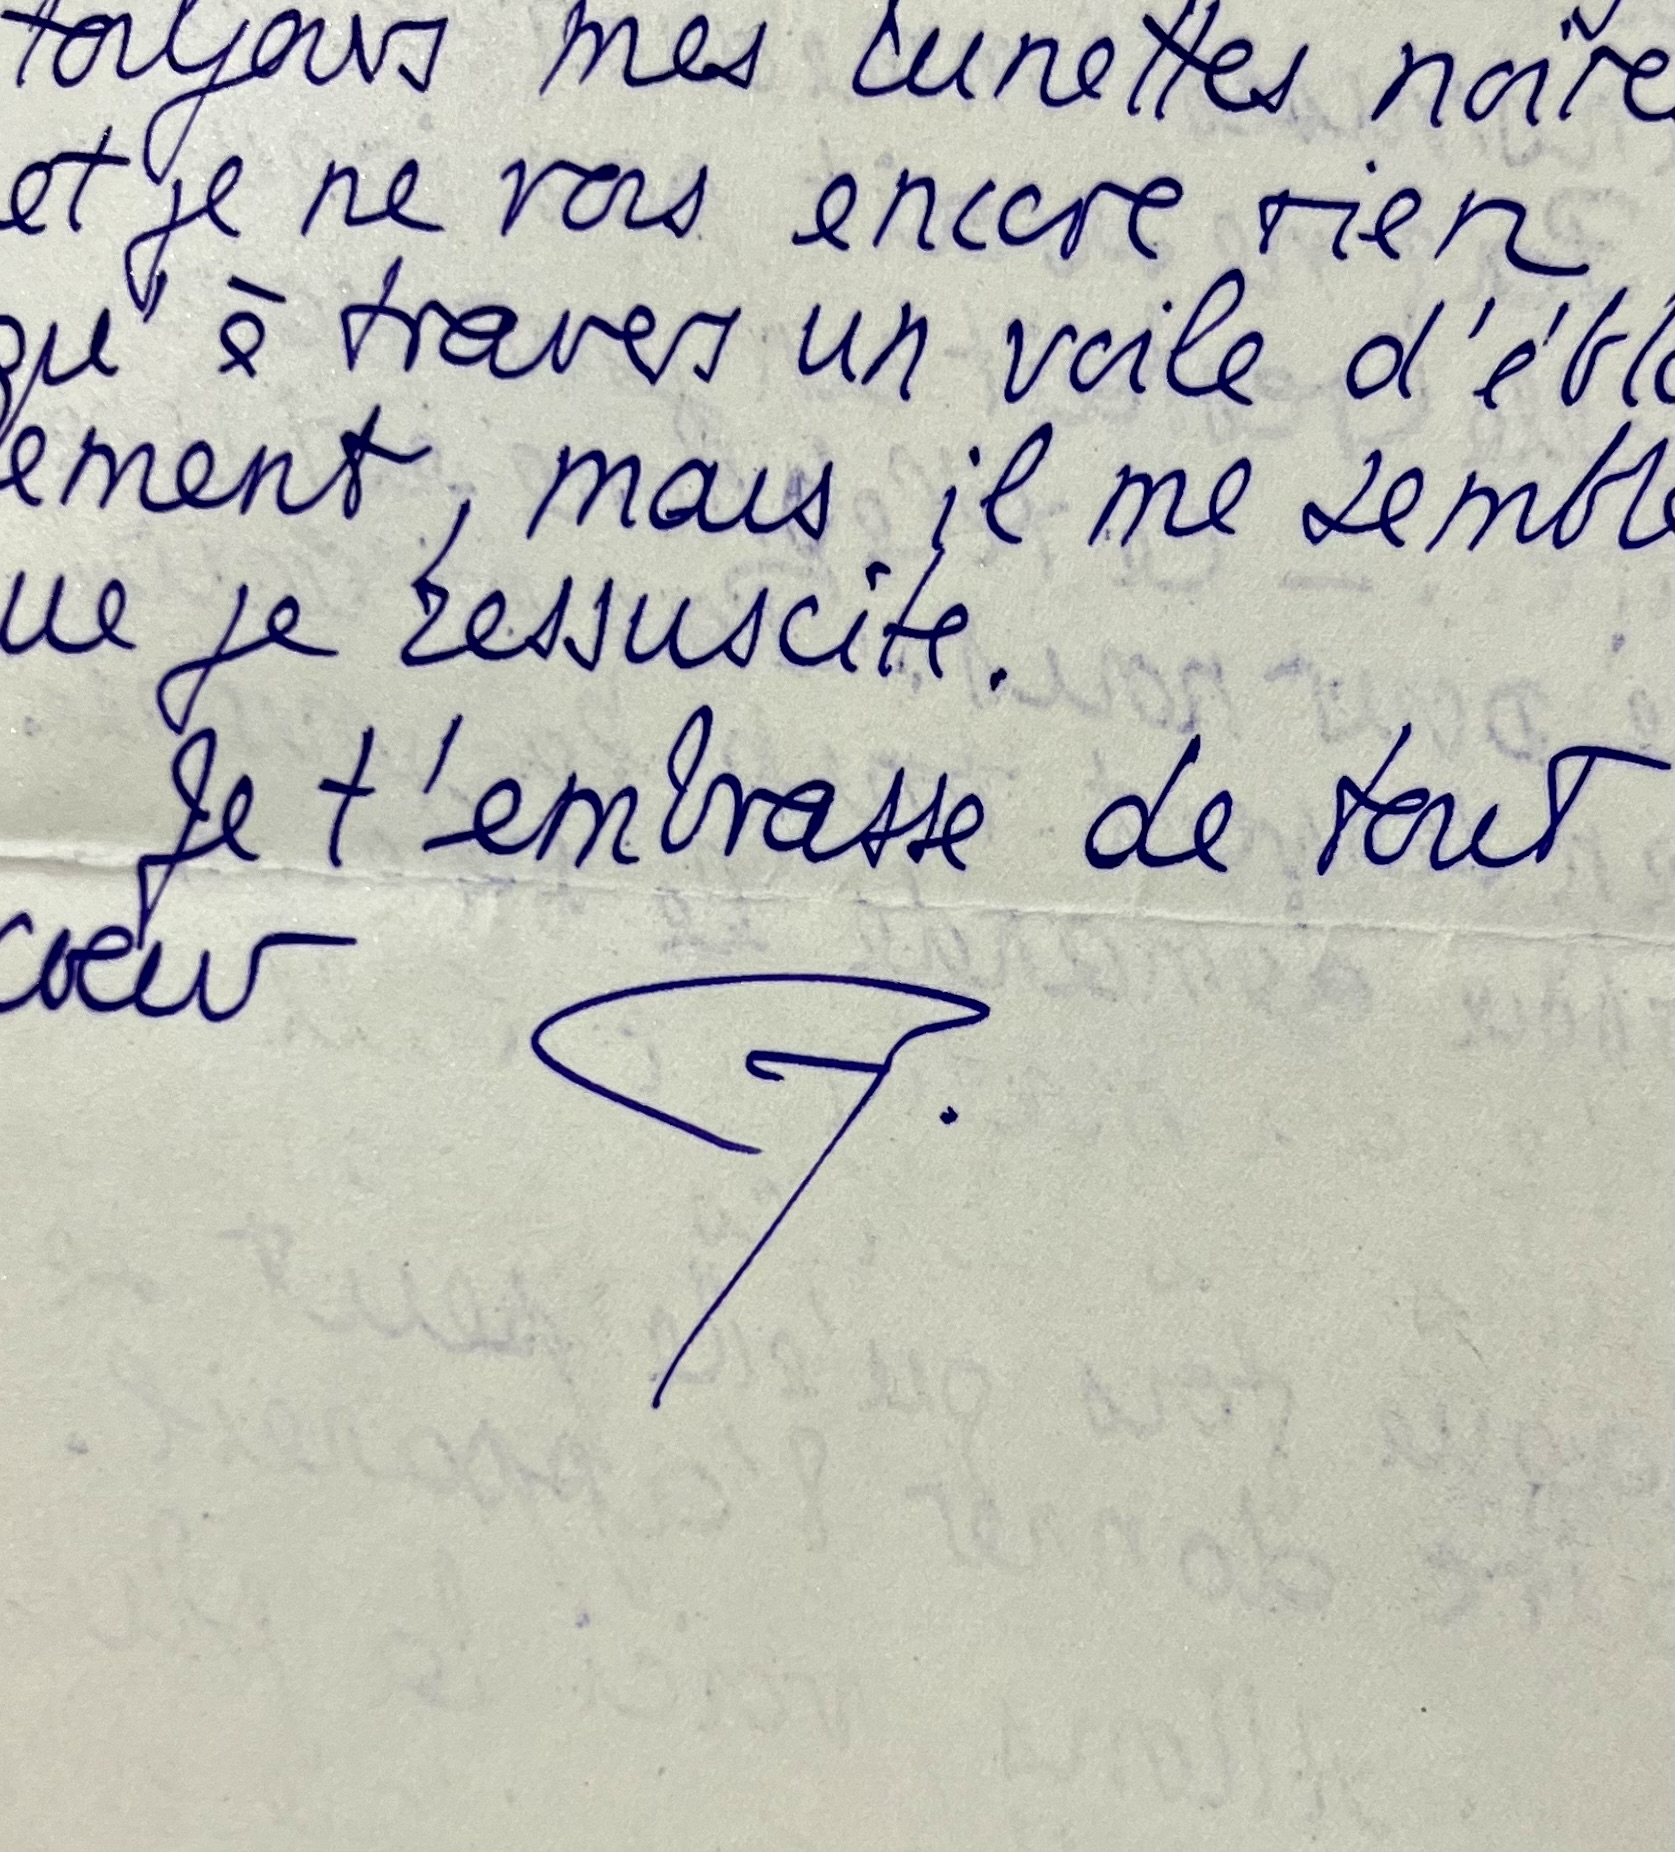 toujours mes lunettes noire
et je ne vois encore rien
qu'à travers un voile d'éblo
ement, mais il me semble
ue je ressuscite.
Je t'embrasse de tout
coeur
G.